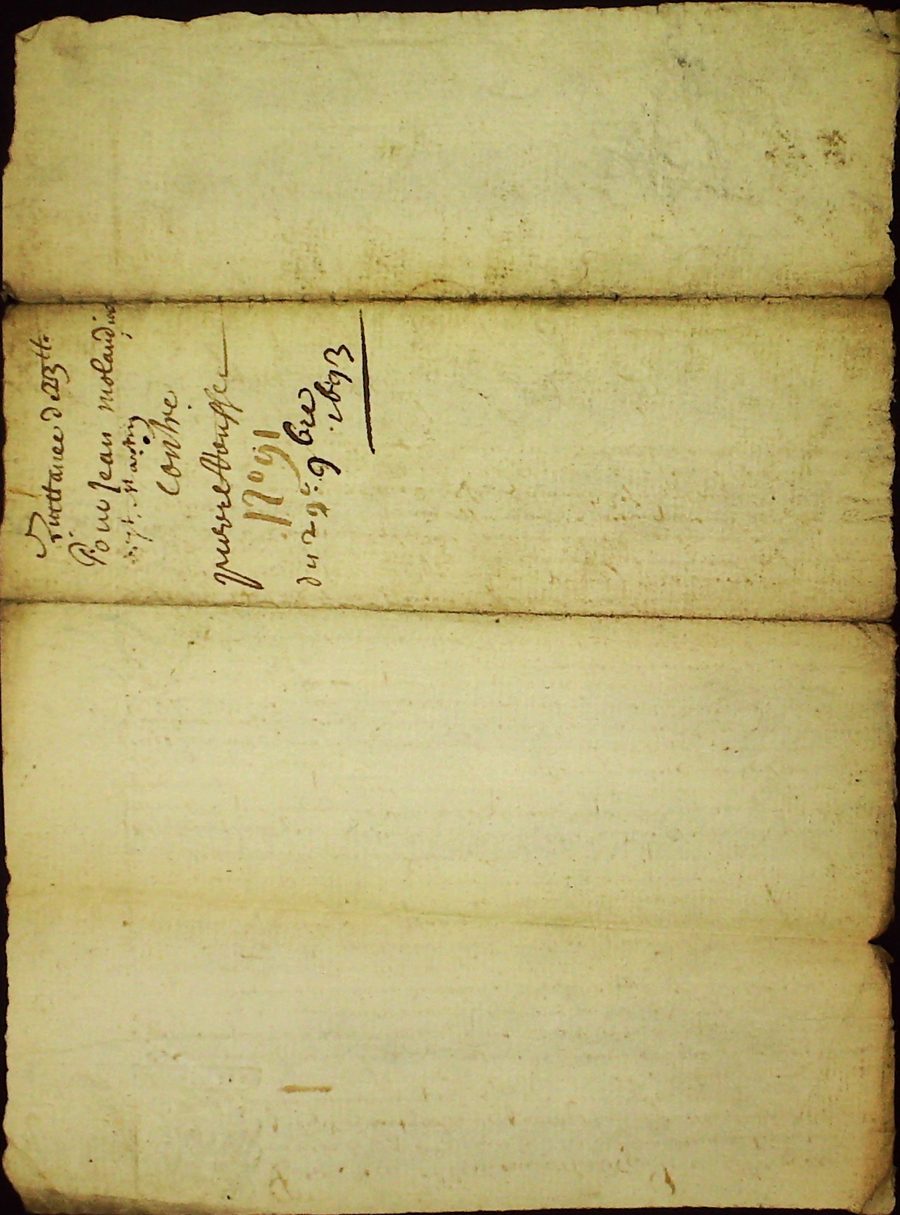 quittance de 213 tt
Pour Jean molandin
contre
pierre
N° 91
du 29e 9bre 1693